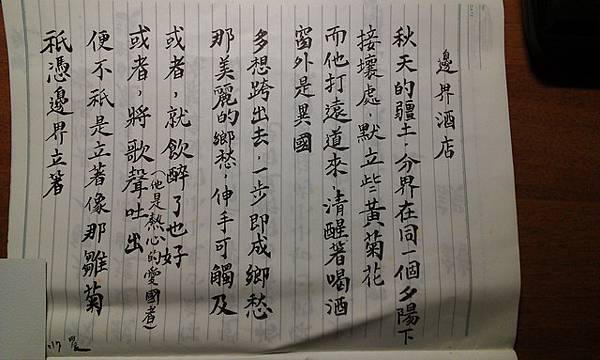 邊界酒店
秋天的疆土,分界在同一個夕陽下
接壤處,默立些黃菊花
而他打遠道來,清醒著喝酒
窗外是異國
多想跨出去,一步即成鄉愁
那美麗的鄉愁,伸手可觸及
或者,就飲醉了也好
(他是熱心的愛國者)
或者,將歌聲吐出
便不祇是立著像那雛菊
祇憑邊界立著